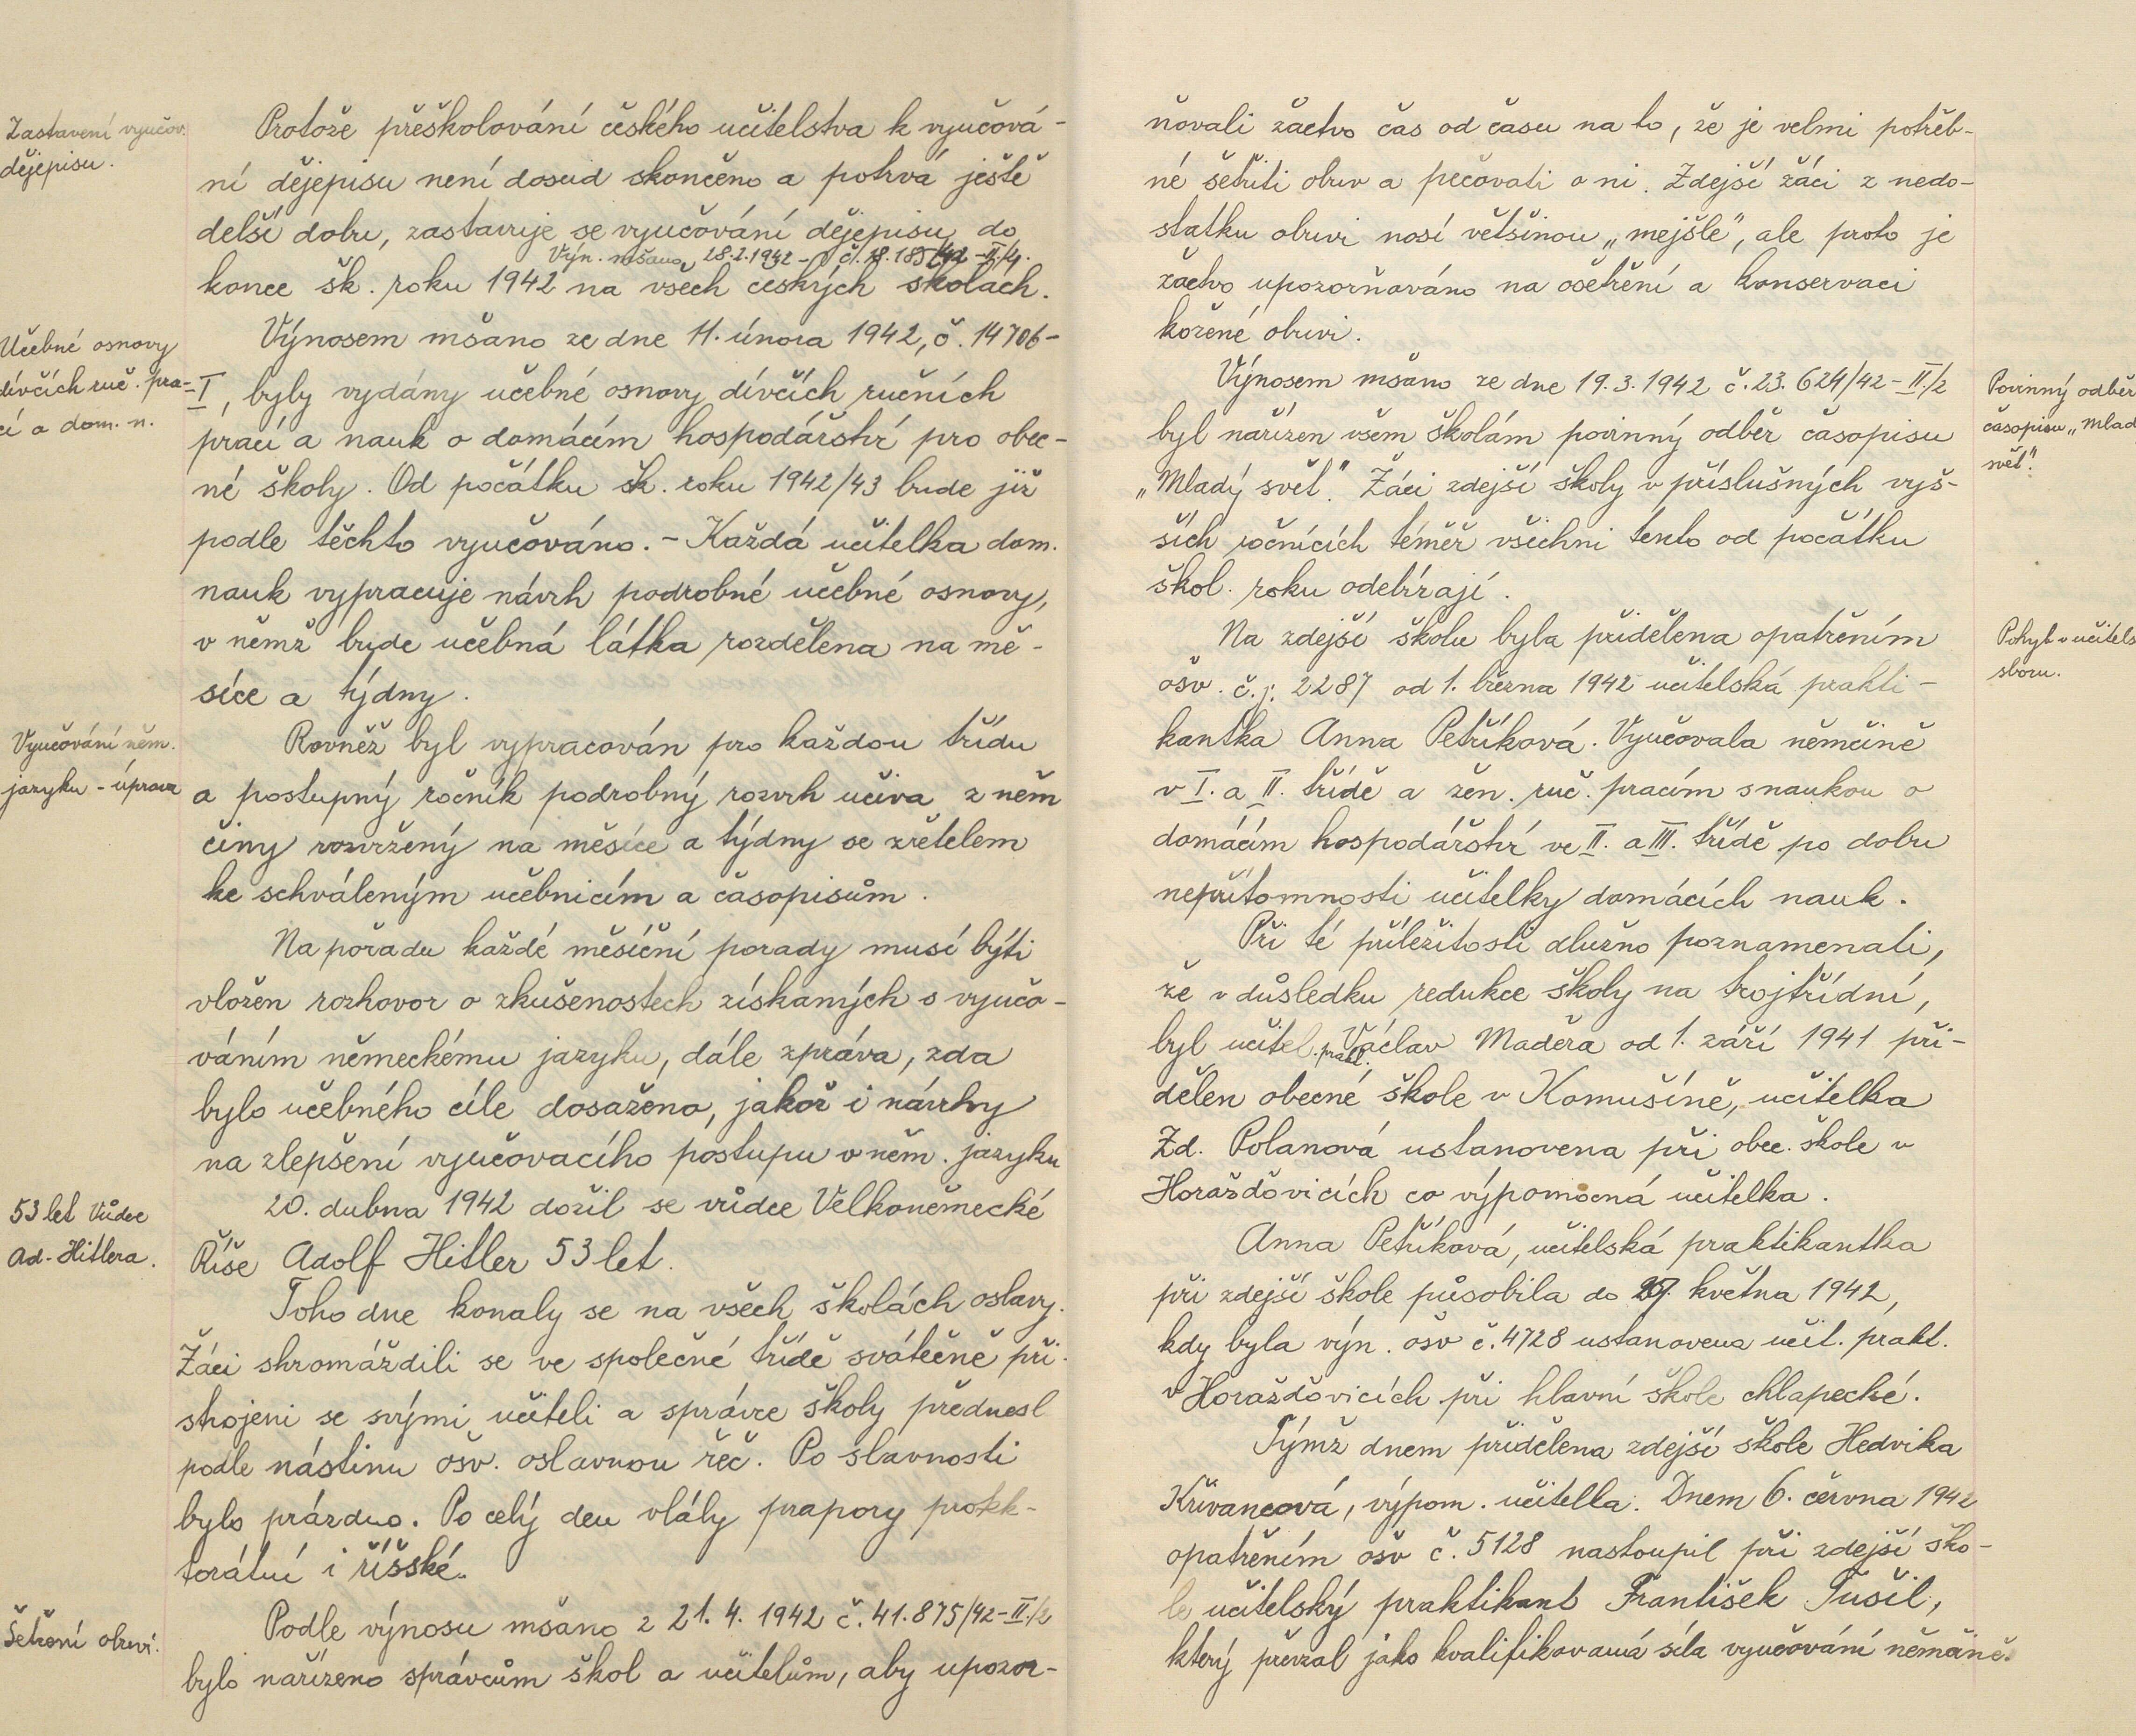 Zastavení vyučov.
dějepisu.
Protože přeškolování českého učitelstva k vyučová-
ní dějepisu není dosud skončeno a potrvá ještě
delší dobu, zastavuje se vyučování dějepisu do
Výn. mšano, 28.2.1942 - č.
konce šk. roku 1942 na všech českých školách.
Učebné osnovy
dívčích ruč. pra-
cí a dom. n.
Výnosem mšano ze dne 11. února 1942, č. 14706-
-I, byly vydány učebné osnovy dívčích ručních
prací a nauk o domácím hospodářství pro obec-
né školy. Od počátku šk. roku 1942/43 bude již
podle těchto vyučováno. - Každá učitelka dom.
nauk vypracuje návrh podrobné učebné osnovy,
v němž bude učebná látka rozdělena na mě-
síce a týdny.
Vyučování něm.
jazyku - úprava
Rovněž byl vypracován pro každou třídu
a postupný ročník podrobný rozvrh učiva z něm
činy rozvržený na měsíce a týdny se zřetelem
ke schváleným učebnicím a časopisům.
Na pořadu každé měsíční porady musí býti
vložen rozhovor o zkušenostech získaných s vyučo-
váním německému jazyku, dále zpráva, zda
bylo učebného cíle dosaženo, jakož i návrhy
na zlepšení vyučovacího postupu v něm. jazyku
53 let Vůdce
Ad. Hitlera.
20. dubna 1942 dožil se vůdce Velkoněmecké
Říše Adolf Hitler 53 let.
Toho dne konaly se na všech školách oslavy.
Žáci shromáždili se ve společné třídě svátečně při-
strojeni se svými učiteli a správce školy přednesl
podle nástinu ošv. oslavnou řeč. Po slavnosti
bylo prázdno. Po celý den vlály prapory protek-
torátní i říšské.
Šetření obuví.
Podle výnosu mšano z 21. 4. 1942 č. 41.875/42-II/2
bylo nařízeno správcům škol a učitelům, aby upozor-
ňovali žactvo čas od času na to, že je velmi potřeb-
né šetřiti obuv a pečovati o ni. Zdejší žáci z nedo-
statku obuvi nosí většinou „mejšle", ale proto je
žactvo upozorňováno na ošetření a konservaci
kožené obuvi.
Výnosem mšano ze dne 19.3.1942 č. 23.624/42-II/2
byl nařízen všem školám povinný odběr časopisu
„Mladý svět". Žáci zdejší školy v příslušných vyš-
ších ročnících téměř všichni tento od počátku
škol. roku odebírají.
Povinný odběr
časopisu „Mlad
svět".
Na zdejší školu byla přidělena opatřením
ošv. č.j. 2287 od 1. března 1942 učitelská prakti-
kantka Anna Petříková. Vyučovala němčině
v I. a II. třídě a žen. ruč. pracím s naukou o
domácím hospodářství ve II. a III. třídě po dobu
nepřítomnosti učitelky domácích nauk.
Pohyb v učitels
sboru.
Při té příležitosti dlužno poznamenati,
že v důsledku redukce školy na trojtřídní,
byl učitel. prakt. Václav Maděra od 1. září 1941 při-
dělen obecné škole v Komušíně, učitelka
Zd. Polanová ustanovena při obec. škole v
Horažďovicích co výpomocná učitelka.
Anna Petříková, učitelská praktikantka
při zdejší škole působila do května 1942,
kdy byla výn. ošv č. 4728 ustanovena učit. prakt.
v Horažďovicích při hlavní škole chlapecké.
Týmž dnem přidělena zdejší škole Hedvika
Křivancová, výpom. učitelka. Dnem 6. června 1942
opatřením ošv č. 5128 nastoupil při zdejší ško-
le učitelský praktikant František Tušil,
který převzal jako kvalifikovaná síla vyučování němčině.